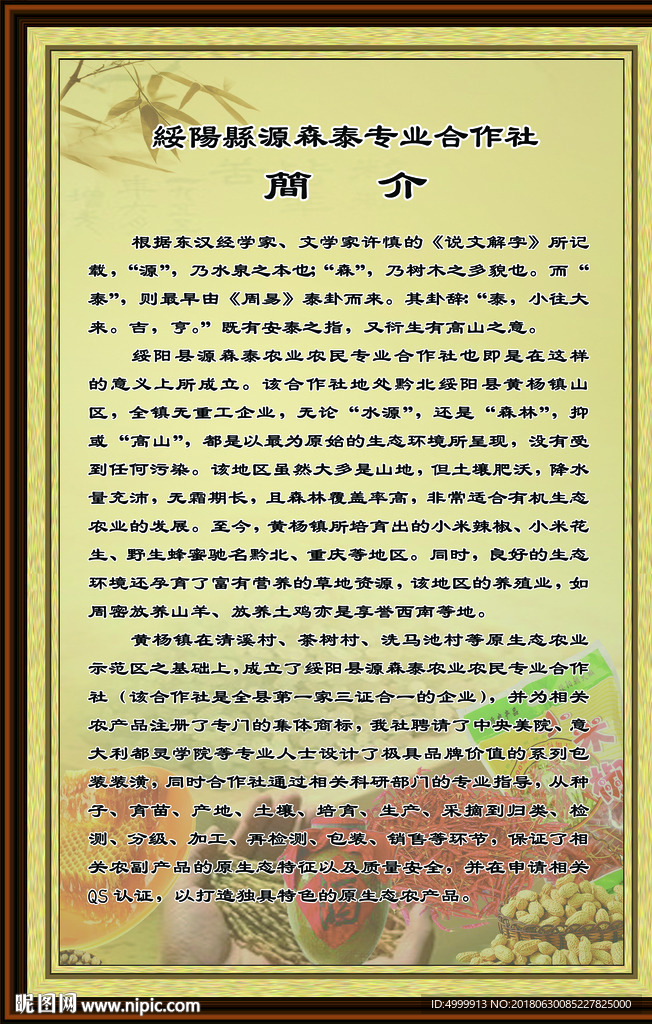 綏陽縣源森泰专业合作社
簡 介
根据东汉经学家、文学家许慎的《说文解字》所记
载，“源”，乃水泉之本也；“森”，乃树木之多貌也。而“
泰”，则最早由《周易》泰卦而来。其卦辞：“泰，小往大
来。吉，亨。”既有安泰之指，又衍生有高山之意。
绥阳县源森泰农业农民专业合作社也即是在这样
的意义上所成立。该合作社地处黔北绥阳县黄杨镇山
区，全镇无重工企业，无论“水源”，还是“森林”，抑
或“高山”，都是以最为原始的生态环境所呈现，没有受
到任何污染。该地区虽然大多是山地，但土壤肥沃，降水
量充沛，无霜期长，且森林覆盖率高，非常适合有机生态
农业的发展。至今，黄杨镇所培育出的小米辣椒、小米花
生、野生蜂蜜驰名黔北、重庆等地区。同时，良好的生态
环境还孕育了富有营养的草地资源，该地区的养殖业，如
周密放养山羊、放养土鸡亦是享誉西南等地。
黄杨镇在清溪村、茶树村、洗马池村等原生态农业
示范区之基础上，成立了绥阳县源森泰农业农民专业合作
社（该合作社是全县第一家三证合一的企业），并为相关
农产品注册了专门的集体商标，我社聘请了中央美院、意
大利都灵学院等专业人士设计了极具品牌价值的系列包
装装潢，同时合作社通过相关科研部门的专业指导，从种
子、育苗、产地、土壤、培育、生产、采摘到归类、检
测、分级、加工、再检测、包装、销售等环节，保证了相
关农副产品的原生态特征以及质量安全，并在申请相关
QS认证，以打造独具特色的原生态农产品。
昵图网 www.nipic.com
ID:4999913 NO:20180630085227825000